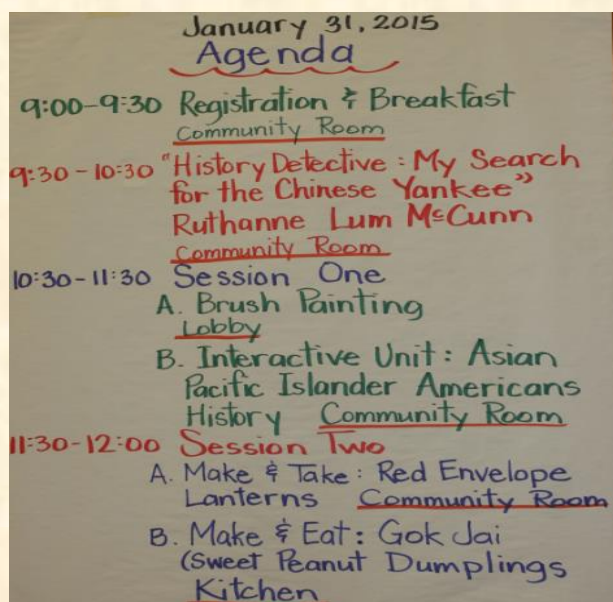 January 31, 2015
Agenda
9:00-9:30 Registration & Breakfast
Community Room
9:30-10:30 "History Detective: My Search
for the Chinese Yankee"
Ruthanne Lum McCunn
Community Room
10:30-11:30 Session One
A. Brush Painting
Lobby
B. Interactive Unit: Asian
Pacific Islander Americans
History Community Room
11:30-12:00 Session Two
A. Make & Take: Red Envelope
Lanterns Community Room
B. Make & Eat: Gok Jai
(Sweet Peanut Dumplings
Kitchen